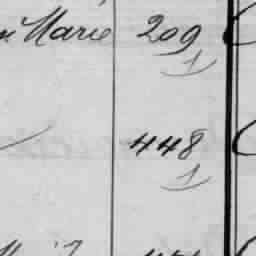 Marie 209
1
448
1